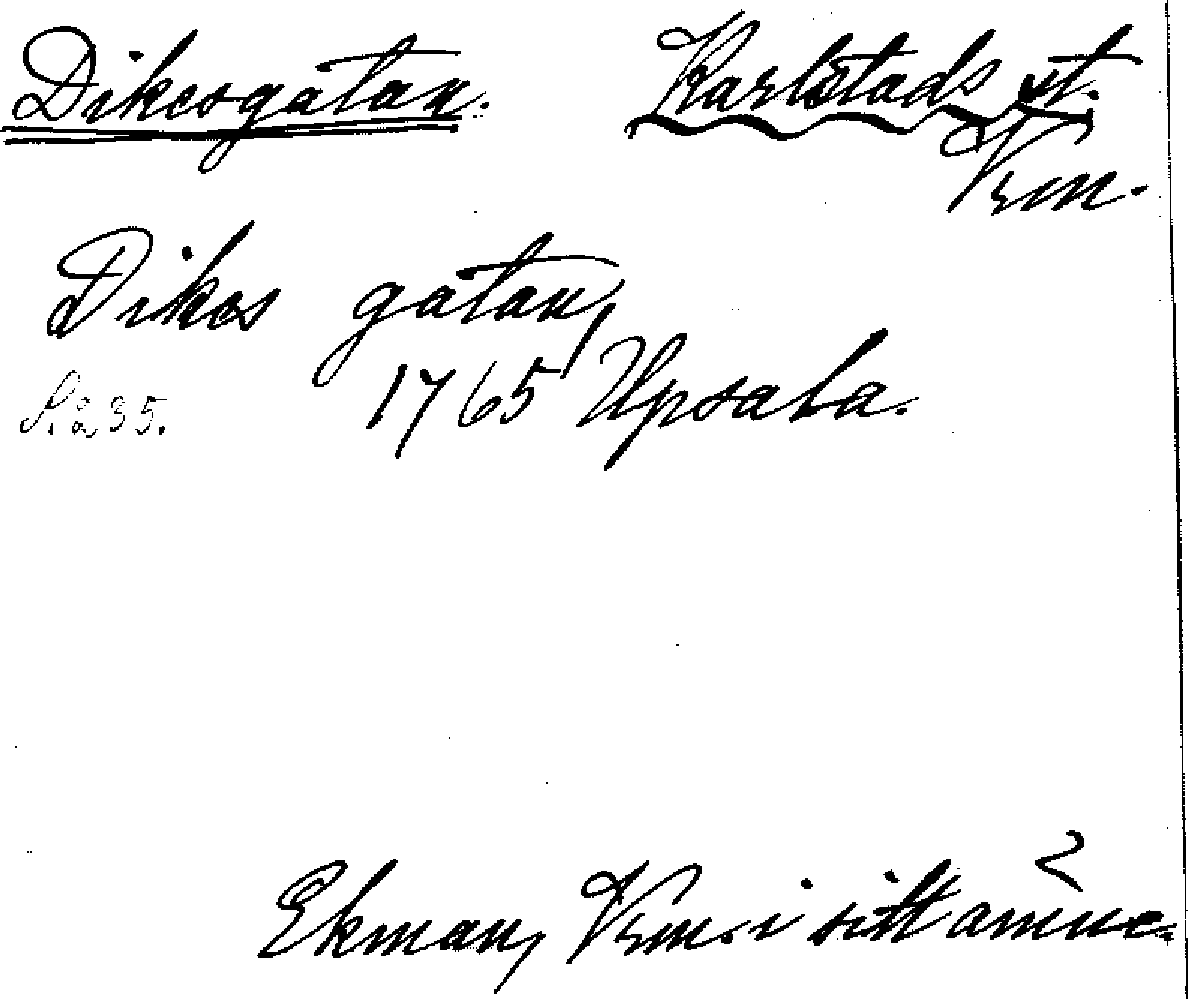 Dikesgatan. Karlstads st.
Vrm.
Dikes gatan,
S. 235. 1765 Upsala.
Ekman, Vrm. i sitt ämne.